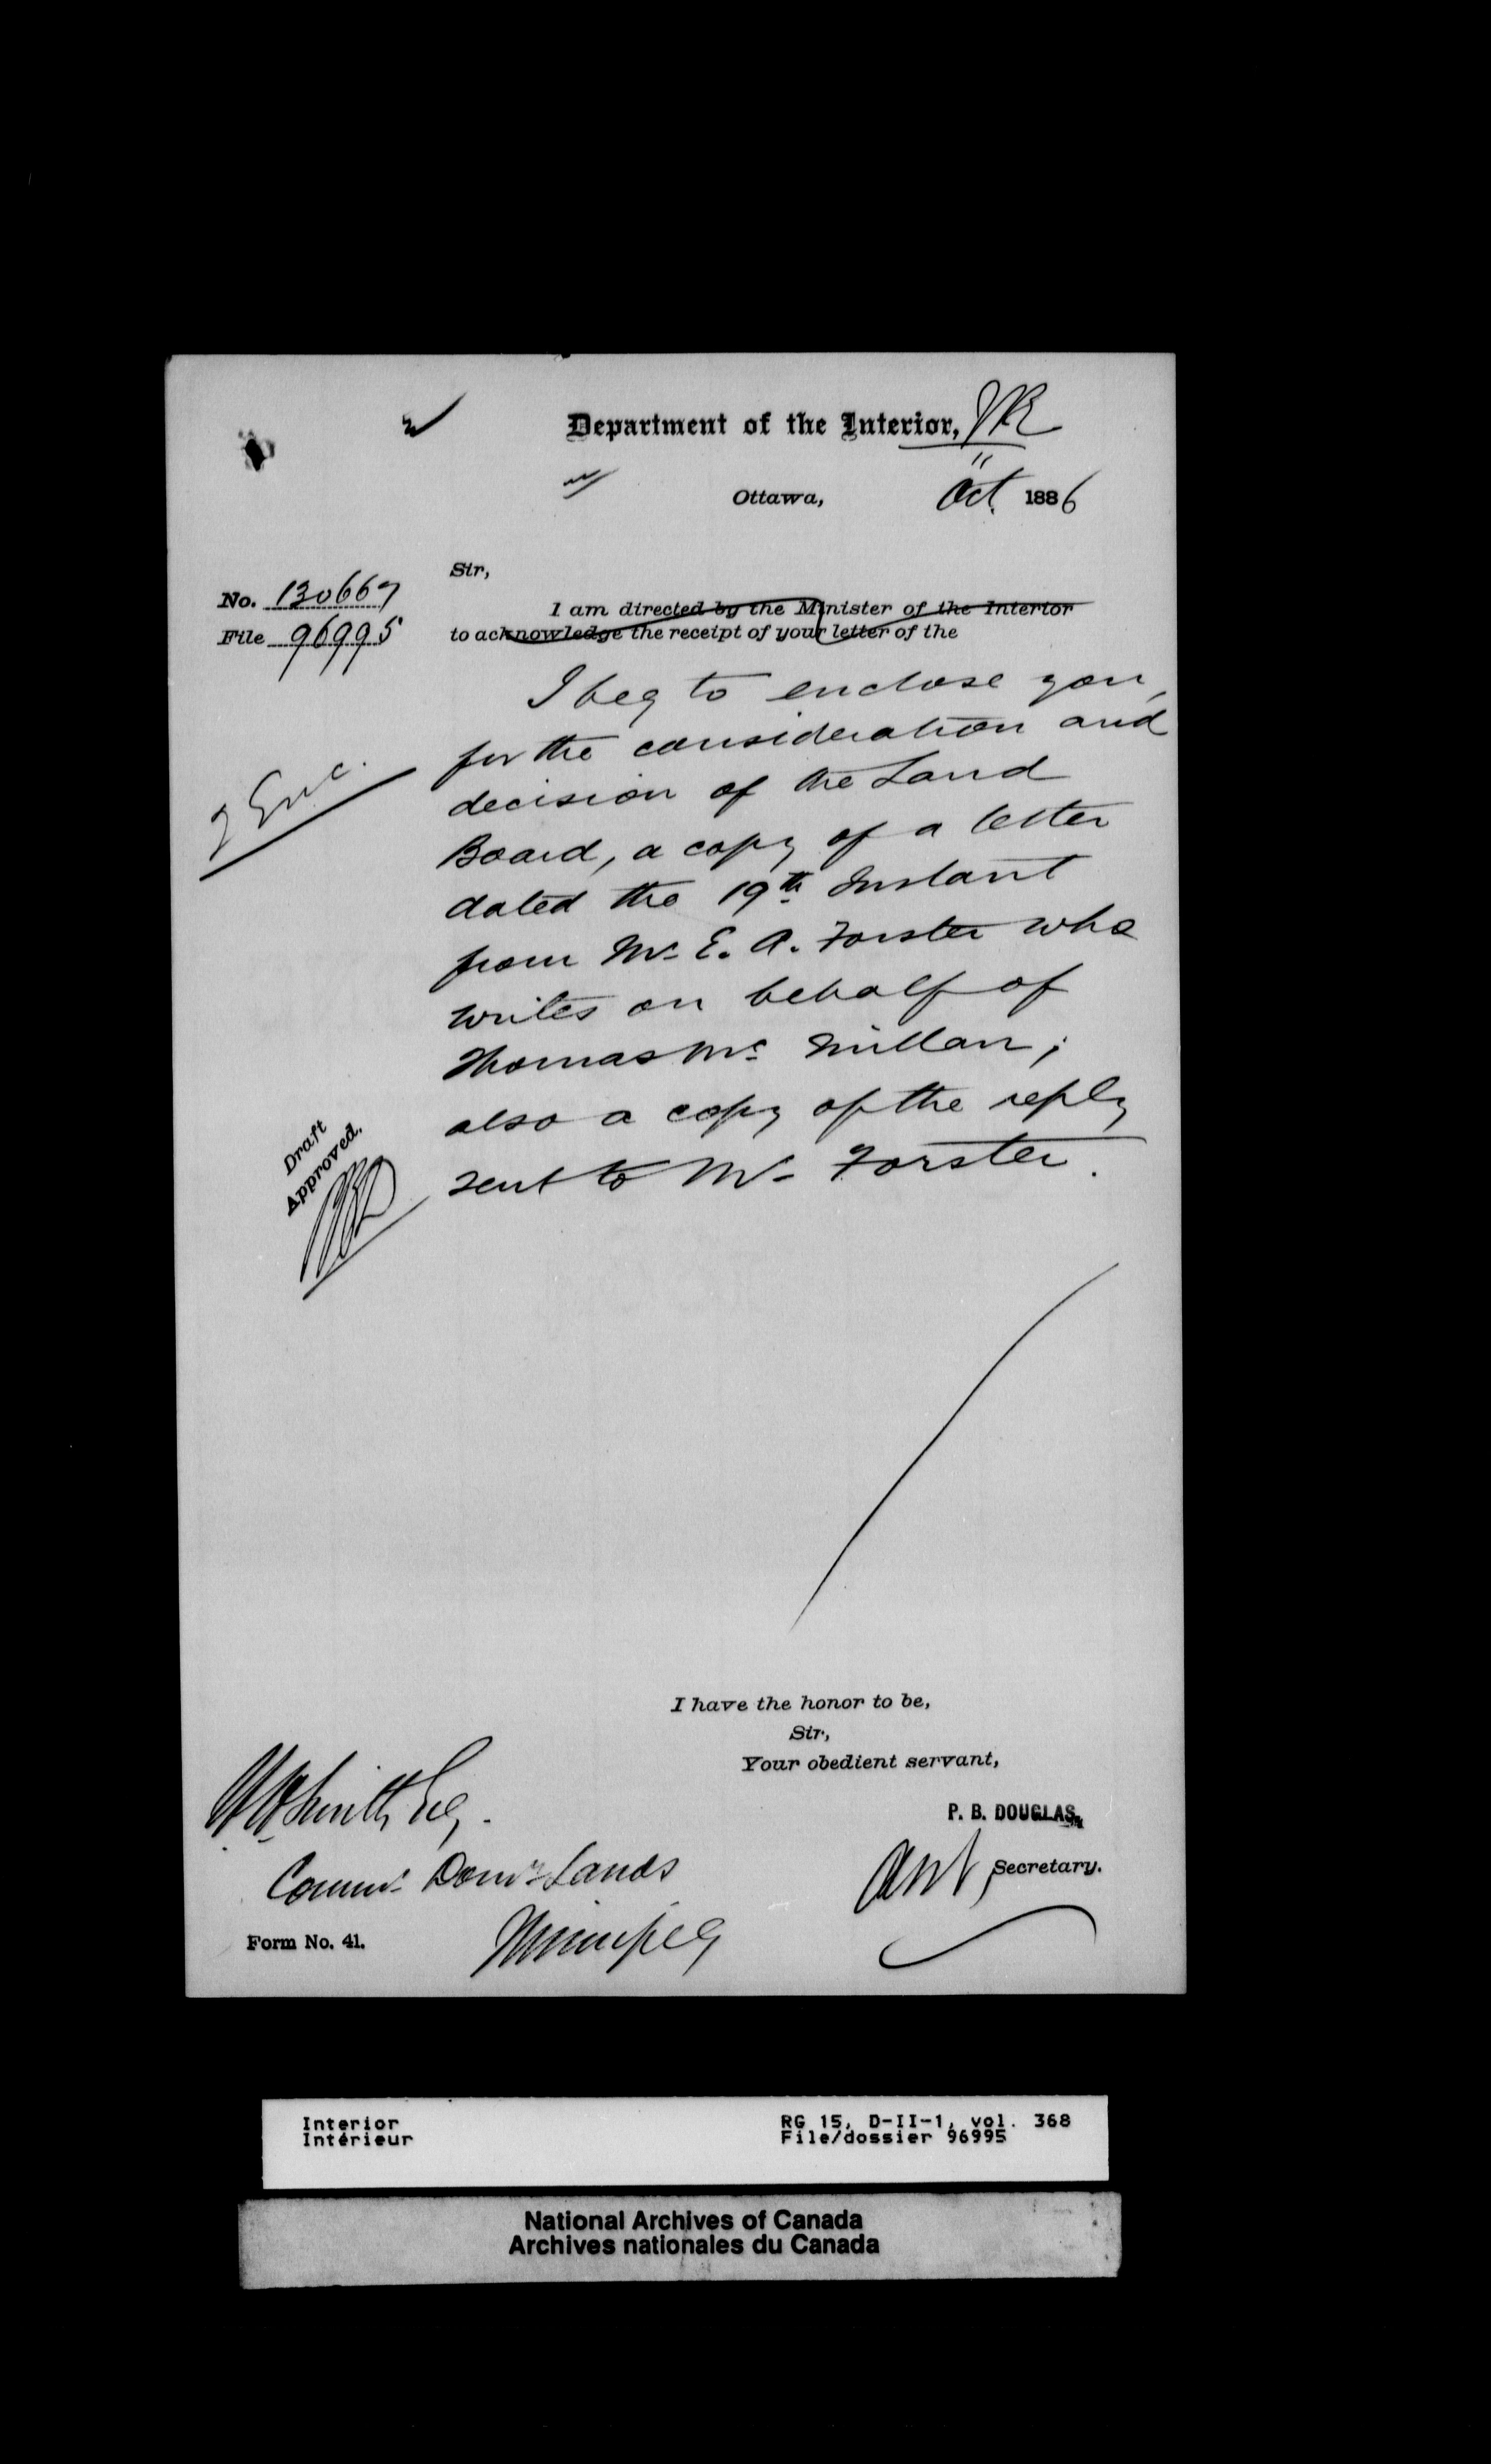 Department of the Interior,
Ottawa, Oct. 1886
Sir,
No. 130667
File 96995
I am directed by the Minister of the Interior
to acknowledge the receipt of your letter of the
I beg to enclose you,
for the consideration and
decision of the Land
2 Enc.
Board, a copy of a letter
dated the 19th Instant
from Mr. E. A. Forster who
writes on behalf of
Thomas Mc Millan;
also a copy of the reply
sent to Mr. Forster.
Draft
Approved.
I have the honor to be,
Sir,
Your obedient servant,
P. B. DOUGLAS,
Smith Esq.
Secretary.
Commr. Domn. Lands
Winnipeg
Form No. 41.
Interior
Intérieur
RG 15, D-II-1, vol. 368
File/dossier 96995
National Archives of Canada
Archives nationales du Canada